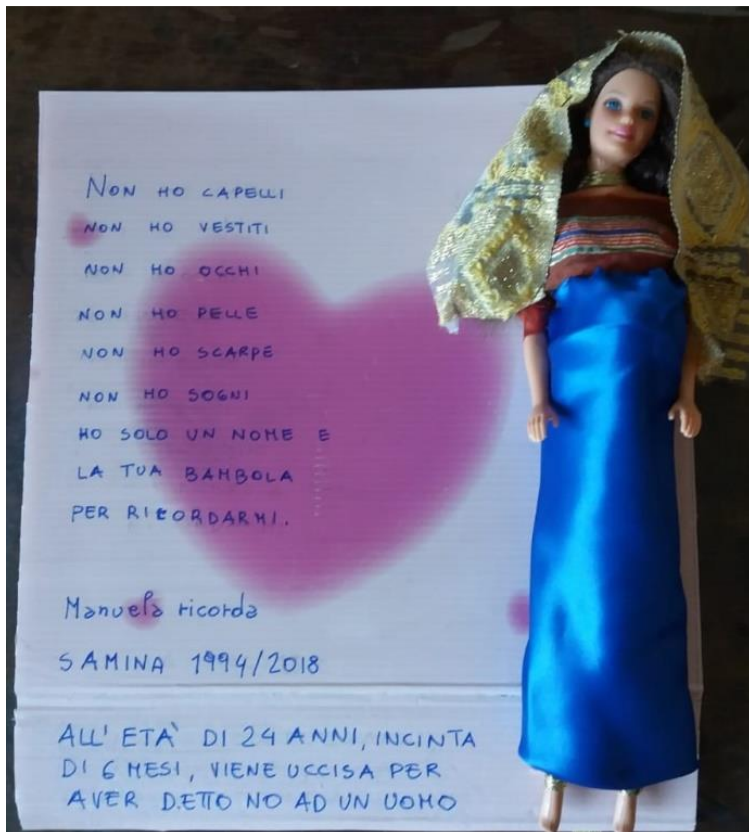 NON HO CAPELLI
NON HO VESTITI
NON HO OCCHI
NON HO PELLE
NON HO SCARPE
NON HO SOGNI
HO SOLO UN NOME E
LA TUA BAMBOLA
PER RICORDARMI.
Manuela ricorda
SAMINA 1994/2018
ALL' ETÀ DI 24 ANNI, INCINTA
DI 6 MESI, VIENE UCCISA PER
AVER DETTO NO AD UN UOMO